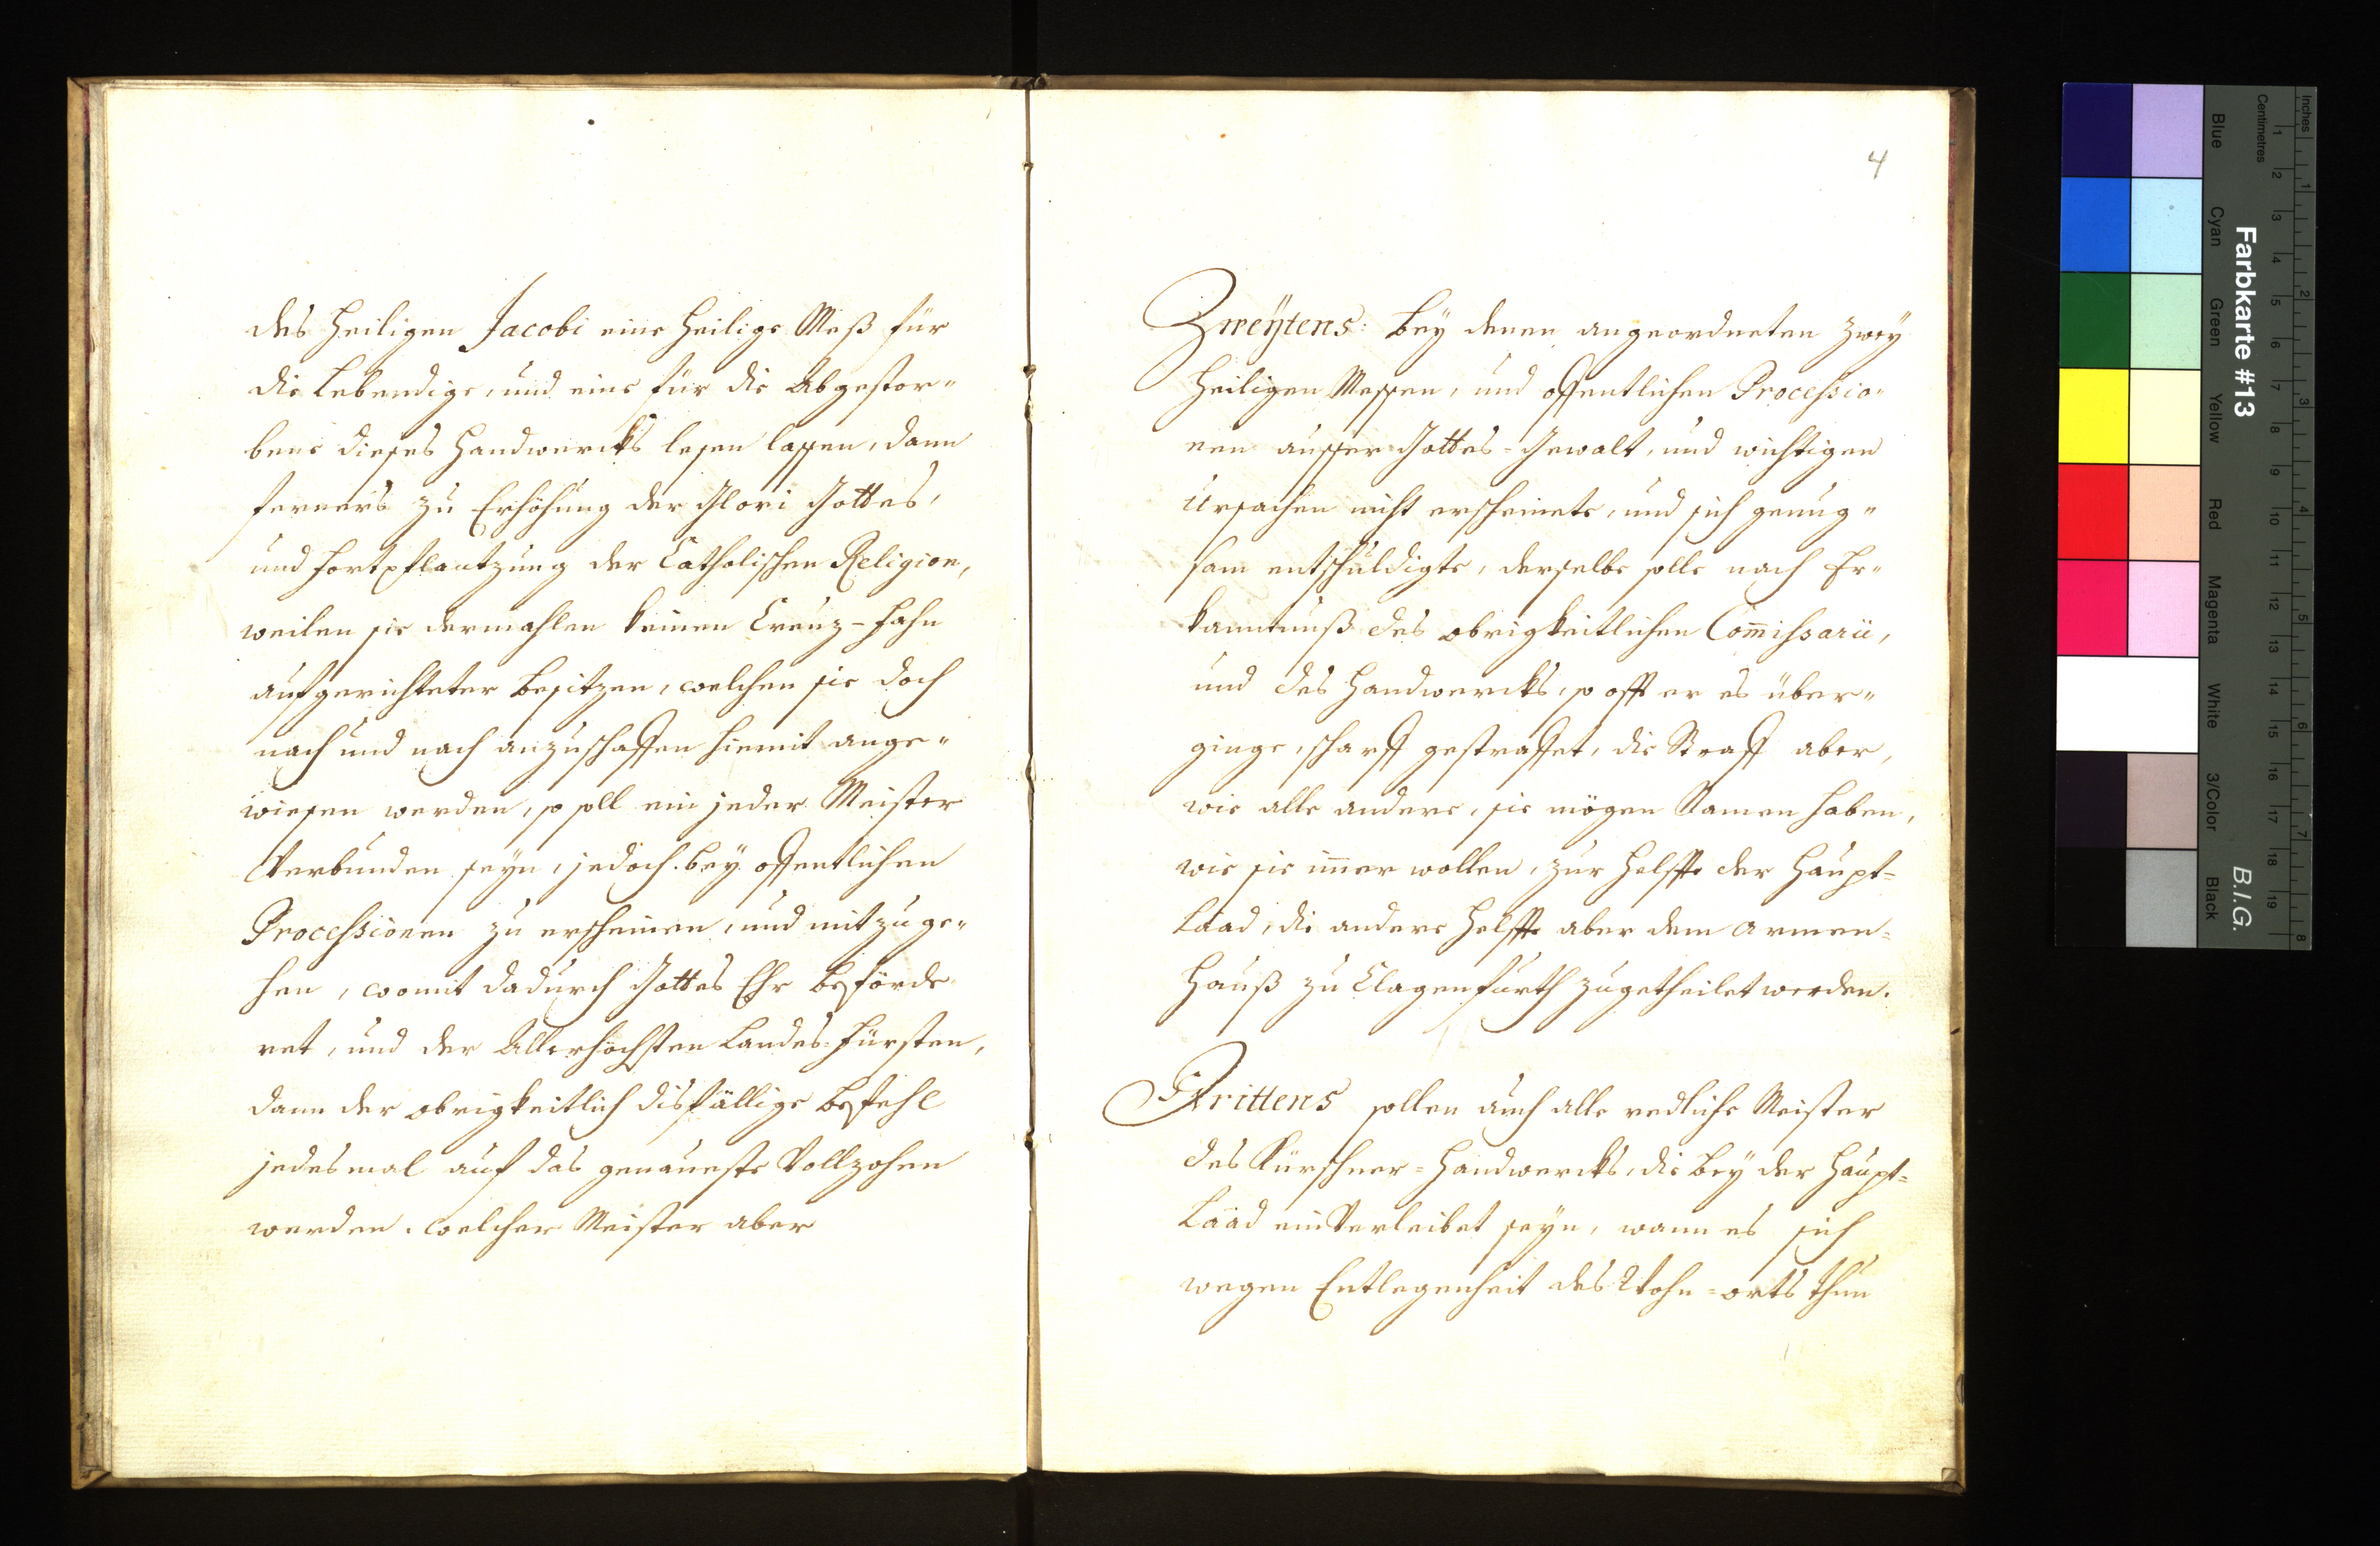 des Heiligen Jacobi eine Heilige Meß für
die Lebendige, und eine für die Abgestor„
bene dieses Handwercks lesen lassen, dann
ferners zu Erhöhung der Glori Gottes,
und Fortpflantzung der Catholischen Religion,
weilen sie dermahlen keinen Creuz-Fahn
aufgerichteter besitzen, welchen sie doch
nach und nach anzuschaffen hiemit ange„
wiesen werden, so soll ein jeder Meister
Verbunden seyn, jedoch bey offentlichen
Processionen zu erscheinen, und mitzuge„
hen, womit dadurch Gottes Ehr beförde„
ret, und der Allerhöchsten Landes-Fürsten,
dann der obrigkeitlich disfällige befehl
jedesmal auf das genaueste Vollzohen
werden. welcher Meister aber
4
Zweÿtens: beÿ denen angeordneten zweÿ
Heiligen Messen, und offentlichen Processio„
nen ausser Gottes-Gewalt, und wichtigen
Ursachen nicht erscheinete, und sich genug„
sam entschuldigte, derselbe solle nach Er„
kanntnuß des obrigkeitlichen Com̄issarii,
und des Handwercks, so offt er es über„
ginge, scharff gestraffet, die Straff aber,
wie alle andere, sie mögen Namen haben,
wie sie im̄er wollen, zur Helffte der Haupt=
Laad, di andere Helffte aber dem Armen=
Hauß zu Clagenfurth zugetheilet werden.
Drittens sollen auch alle redliche Meister
des Kürschner=Handwercks, die beÿ der Haupt=
Laad einverleibet seÿn, wann es sich
wegen Entlegenheit des Wohn=orts thun
Farbkarte #13
B.I.G.
Inches
Centimetres
Blue Cyan Green Yellow Red Magenta White 3/Color Black
1 2 3 4 5 6 7 8 9 10 11 12 13 14 15 16 17 18 19
1 2 3 4 5 6 7 8